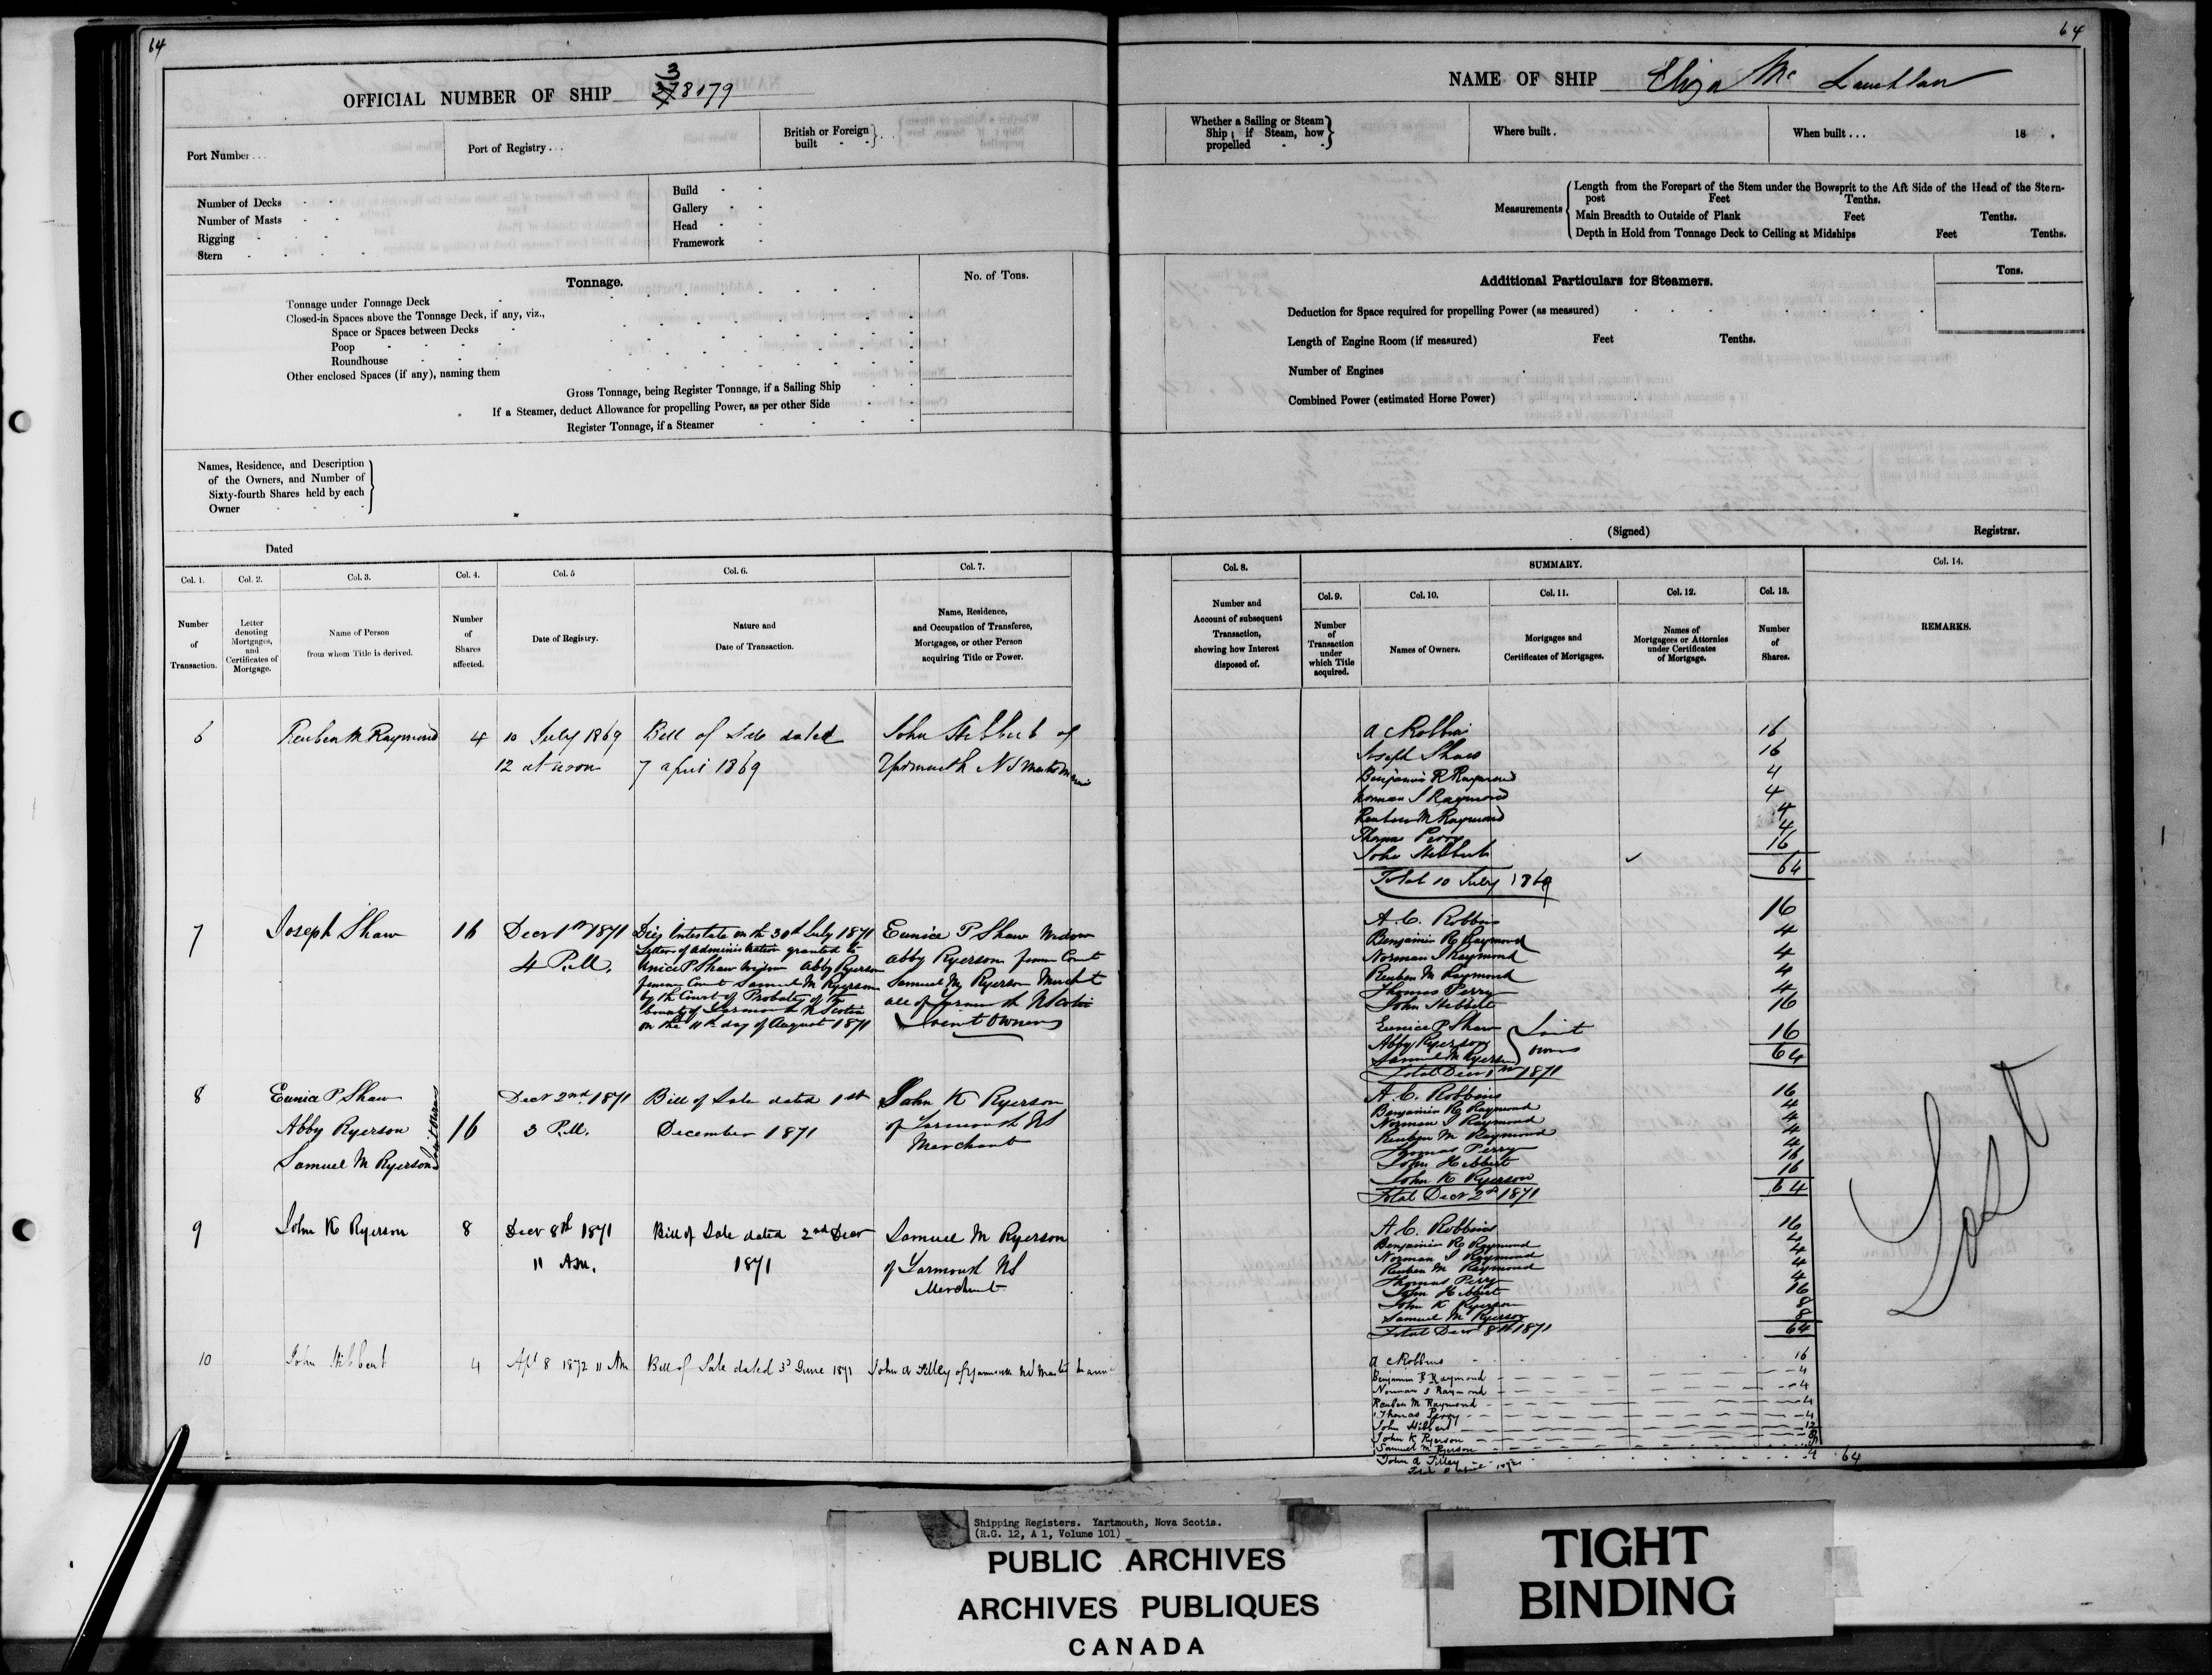 64
64
OFFICIAL NUMBER OF SHIP 38179
NAME OF SHIP Eliza Mc Lauchlan
Port Number . . .
Port of Registry . . .
British or Foreign built
Whether a Sailing or Steam Ship; if Steam, how propelled
Where built .
When built . . . 18 .
Number of Decks
Number of Masts
Rigging
Stern
Build
Gallery
Head
Framework
Measurements
Length from the Forepart of the Stem under the Bowsprit to the Aft Side of the Head of the Stern-
post Feet Tenths.
Main Breadth to Outside of Plank Feet Tenths.
Depth in Hold from Tonnage Deck to Ceiling at Midships Feet Tenths.
Tonnage.
No. of Tons.
Tonnage under Tonnage Deck
Closed-in Spaces above the Tonnage Deck, if any, viz.,
Space or Spaces between Decks
Poop
Roundhouse
Other enclosed Spaces (if any), naming them
Gross Tonnage, being Register Tonnage, if a Sailing Ship
If a Steamer, deduct Allowance for propelling Power, as per other Side
Register Tonnage, if a Steamer
Additional Particulars for Steamers.
Tons.
Deduction for Space required for propelling Power (as measured)
Length of Engine Room (if measured) Feet Tenths.
Number of Engines
Combined Power (estimated Horse Power)
Names, Residence, and Description
of the Owners, and Number of
Sixty-fourth Shares held by each
Owner
Dated
(Signed) Registrar.
Col. 1.
Number
of
Transaction.
Col. 2.
Letter
denoting
Mortgages,
and
Certificates of
Mortgage.
Col. 3.
Name of Person
from whom Title is derived.
Col. 4.
Number
of
Shares
affected.
Col. 5
Date of Registry.
Col. 6.
Nature and
Date of Transaction.
Col. 7.
Name, Residence,
and Occupation of Transferee,
Mortgagee, or other Person
acquiring Title or Power.
Col. 8.
Number and
Account of subsequent
Transaction,
showing how Interest
disposed of.
SUMMARY.
Col. 9.
Number
of
Transaction
under
which Title
acquired.
Col. 10.
Names of Owners.
Col. 11.
Mortgages and
Certificates of Mortgages.
Col. 12.
Names of
Mortgagees or Attornies
under Certificates
of Mortgage.
Col. 13.
Number
of
Shares.
Col. 14.
REMARKS.
6
Reuben M Raymond
4
10 July 1869
12 at noon
Bill of Sale dated
7 April 1869
John Hibbert of
Yarmouth NS Master Mariner
A C Robbins 16
Joseph Shaw 16
Benjamin R Raymond 4
Norman J Raymond 4
Reuben M Raymond 4
Thomas Perry 4
John Hibbert 16
64
Total 10 July 1869
7
Joseph Shaw
16
Decr 1st 1871
4 P.M.
Dies Intestate on the 30th July 1871
Letter of administration granted to
Unice P Shaw Widow Abby Ryerson
femme Covert Samuel M Ryerson
by the Court of Probate of the
County of Yarmouth N Scotia
on the 11th day of August 1871
Eunice P Shaw Widow
Abby Ryerson femme Covert
Samuel M Ryerson Mercht
all of Yarmouth N Scotia
Joint Owners
A. C. Robbins 16
Benjamin R Raymond 4
Norman J Raymond 4
Reuben M Raymond 4
Thomas Perry 4
John Hibbert 16
Eunice P Shaw
Abby Ryerson
Samuel M Ryerson
Joint
Owners
16
64
Total Decr 1st 1871
8
Eunice P Shaw
Abby Ryerson
Samuel M Ryerson
Joint Owners
16
Decr 2nd 1871
3 P.M.
Bill of Sale dated 1st
December 1871
John K Ryerson
of Yarmouth NS
Merchant
A. C. Robbins 16
Benjamin R Raymond 4
Norman J Raymond 4
Reuben M Raymond 4
Thomas Perry 4
John Hibbert 16
John K Ryerson 16
64
Total Decr 2d 1871
9
John K Ryerson
8
Decr 8th 1871
11 Am.
Bill of Sale dated 2nd Decr
1871
Samuel M Ryerson
of Yarmouth NS
Merchant
A. C. Robbins 16
Benjamin R Raymond 4
Norman J Raymond 4
Reuben M Raymond 4
Thomas Perry 4
John Hibbert 16
John K Ryerson 8
Samuel M Ryerson 8
64
Total Decr 8th 1871
10
John Hibbert
4
Apl 8 1872 11 Am
Bill of Sale dated 3d June 1871
John A Tilley of Yarmouth NS Master Marin
A C Robbins 16
Benjamin R Raymond 4
Norman J Raymond 4
Reuben M Raymond 4
Thomas Perry 4
John Hibbert 12
John K Ryerson 8
Samuel M Ryerson 8
John A Tilley 4 64
Total 8 April 1872
Lost
Shipping Registers. Yartmouth, Nova Scotia.
(R.G. 12, A 1, Volume 101)
PUBLIC ARCHIVES
ARCHIVES PUBLIQUES
CANADA
TIGHT
BINDING